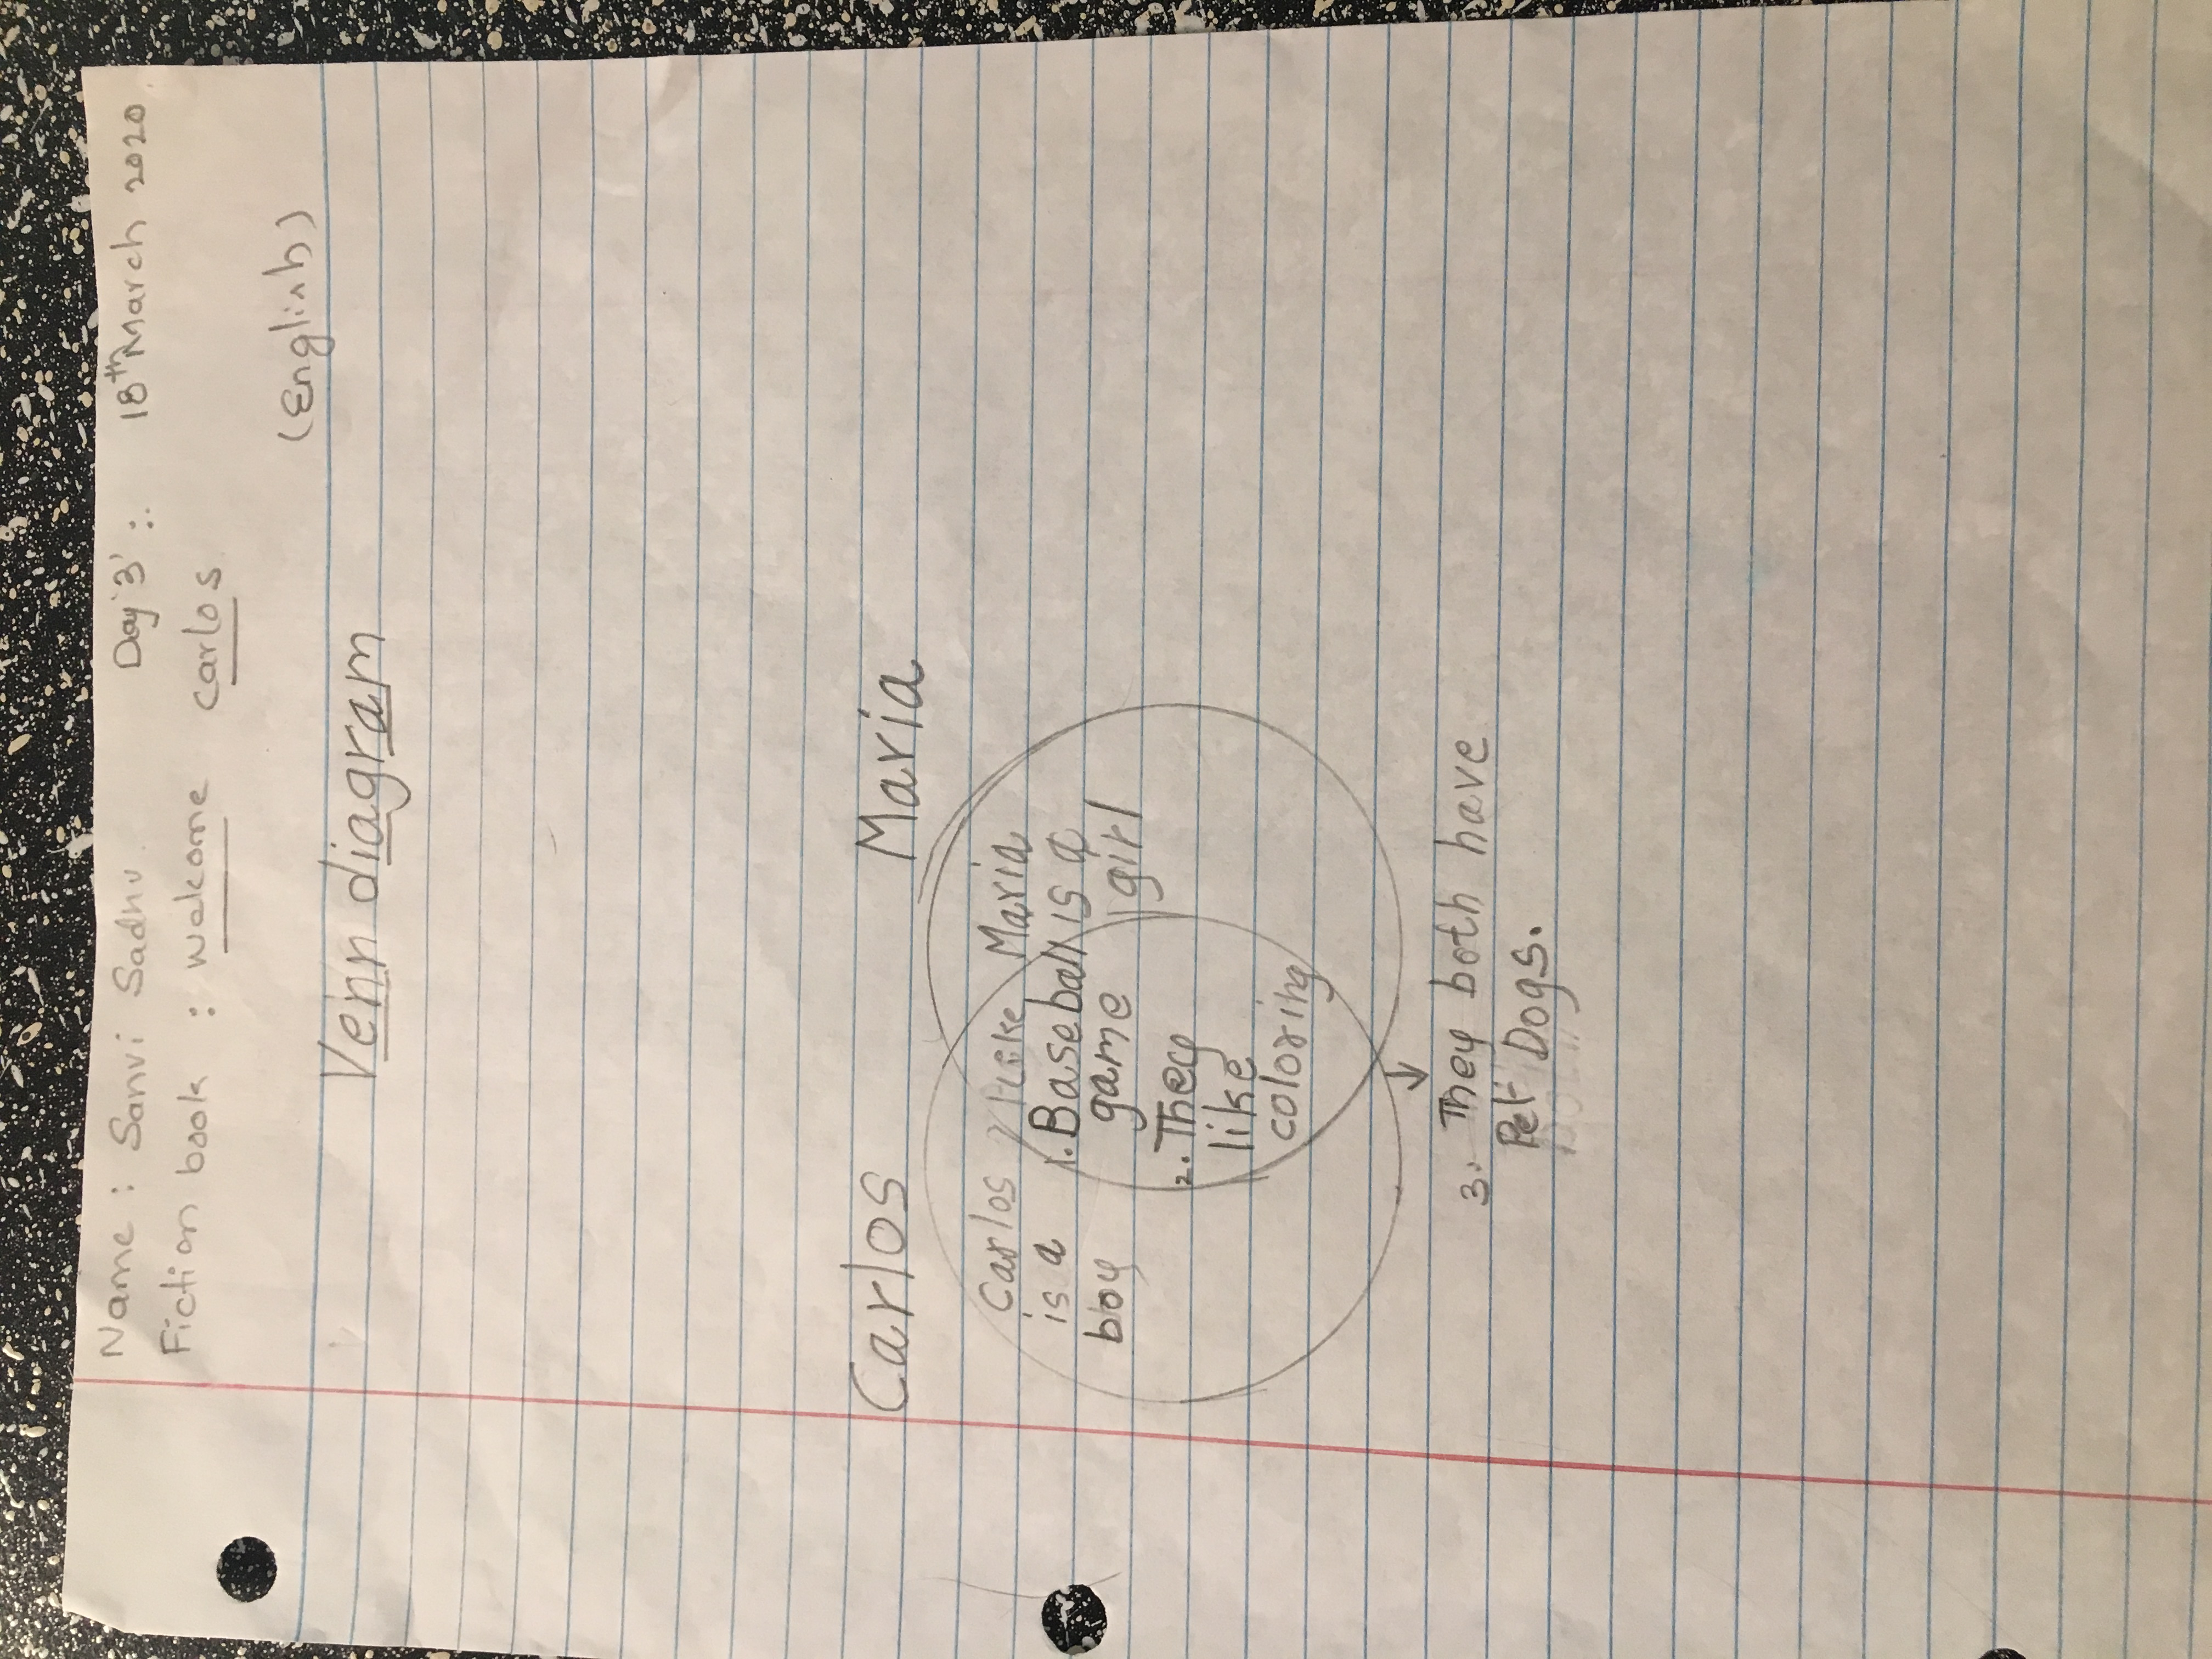 Name : Sanvi Sadhu. Day '3' :. 18th March 2020.
Fiction book : welcome carlos
(English)
Venn diagram
Carlos Maria
Carlos like Maria
is a 1. Baseball is a
boy game girl
2. They
like
coloring
3. They both have
Pet Dogs.